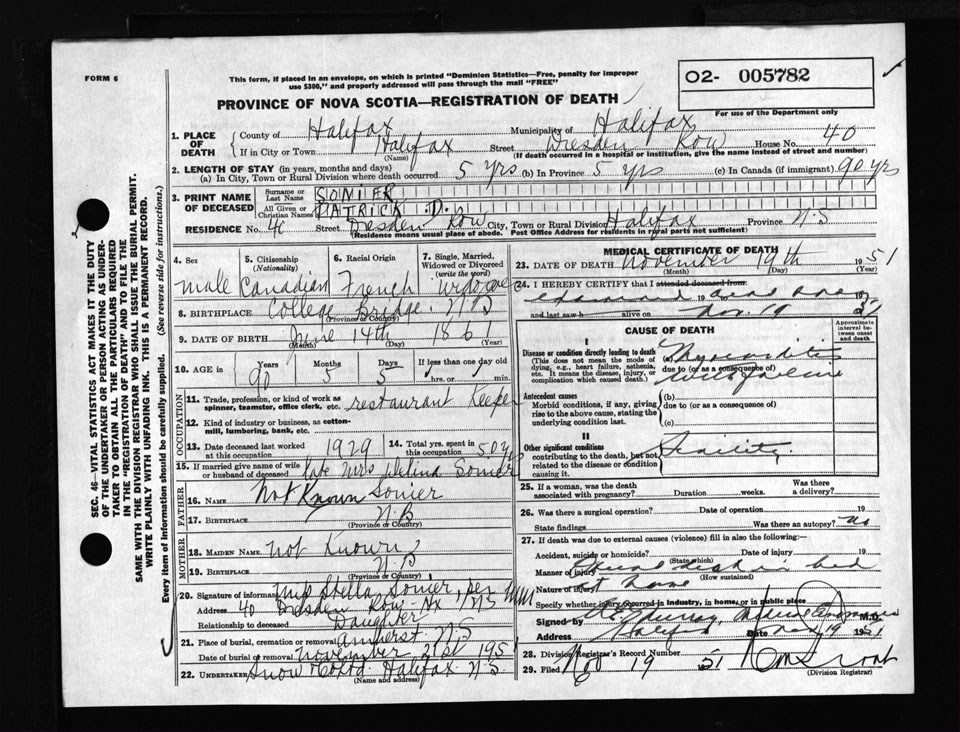 FORM 6
This form, if placed in an envelope, on which is printed "Dominion Statistics—Free, penalty for improper
use $300," and properly addressed will pass through the mail "FREE"
O2- 005782
For use of the Department only
PROVINCE OF NOVA SCOTIA—REGISTRATION OF DEATH
1. PLACE OF DEATH
County of Halifax Municipality of Halifax
If in City or Town Halifax (Name) Street Dresden Row House No. 40
(If death occurred in a hospital or institution, give the name instead of street and number)
2. LENGTH OF STAY (in years, months and days)
(a) In City, Town or Rural Division where death occurred 5 yrs (b) In Province 5 yrs (c) In Canada (if immigrant) 90 yrs
3. PRINT NAME OF DECEASED
Surname or Last Name SONIER
All Given or Christian Names PATRICK D.
RESIDENCE No. 40 Street Dresden Row City, Town or Rural Division Halifax Province N.S
(Residence means usual place of abode. Post Office Address for residents in rural parts not sufficient)
4. Sex male
5. Citizenship (Nationality) Canadian
6. Racial Origin French
7. Single, Married, Widowed or Divorced (write the word) widower
8. BIRTHPLACE College Bridge, N B
(Province or Country)
9. DATE OF BIRTH June 14th 1861
(Month) (Day) (Year)
10. AGE Years 90 Months 5 Days 5 If less than one day old hrs. or min.
OCCUPATION
11. Trade, profession, or kind of work as spinner, teamster, office clerk, etc. restaurant Keeper
12. Kind of industry or business, as cotton-mill, lumbering, bank, etc.
13. Date deceased last worked at this occupation 1929
14. Total yrs. spent in this occupation 50 yrs
15. If married give name of wife or husband of deceased late Mrs Delina Sonier
FATHER
16. Name Not Known Sonier
17. BIRTHPLACE N.B
(Province or Country)
MOTHER
18. MAIDEN NAME Not Known
19. BIRTHPLACE N.B
(Province or Country)
20. Signature of informant Stella Sonier, per
Address 40 Dresden Row Hx NS
Relationship to deceased Daughter
21. Place of burial, cremation or removal Amherst N.S
Date of burial or removal November 21st 1951
22. UNDERTAKER Snow Halifax N.S.
(Name and address)
MEDICAL CERTIFICATE OF DEATH
23. DATE OF DEATH November 19th 1951
(Month) (Day) (Year)
24. I HEREBY CERTIFY that I attended deceased from:
examined 19
and last saw h alive on Nov. 19 51
CAUSE OF DEATH
Approximate interval between onset and death
I
Disease or condition directly leading to death
(This does not mean the mode of dying, e.g., heart failure, asthenia, etc. It means the disease, injury, or complication which caused death.)
(a) Myocarditis
due to (or as a consequence of)
with failure
Antecedent causes
Morbid conditions, if any, giving rise to the above cause, stating the underlying condition last.
(b)
due to (or as a consequence of)
(c)
II
Other significant conditions
contributing to the death, but not related to the disease or condition causing it.
Senility
25. If a woman, was the death associated with pregnancy? Duration weeks. Was there a delivery?
26. Was there a surgical operation? Date of operation 19
State findings Was there an autopsy? no
27. If death was due to external causes (violence) fill in also the following:—
Accident, suicide or homicide? Date of injury 19
(State which)
Manner of injury Found dead in bed
(How sustained)
Nature of injury at home
Specify whether injury occurred in industry, in home, or in public place
Signed by Murray, Medical Examiner M.D.
Address Halifax Date Nov 19 1951
28. Division Registrar's Record Number
29. Filed Nov 19 51
(Division Registrar)
SEC. 46—VITAL STATISTICS ACT MAKES IT THE DUTY
OF THE UNDERTAKER OR PERSON ACTING AS UNDER-
TAKER TO OBTAIN ALL THE PARTICULARS REQUIRED
IN THE "REGISTRATION OF DEATH" AND TO FILE THE
SAME WITH THE DIVISION REGISTRAR WHO SHALL ISSUE THE BURIAL PERMIT.
WRITE PLAINLY WITH UNFADING INK. THIS IS A PERMANENT RECORD.
Every item of information should be carefully supplied. (See reverse side for instructions.)